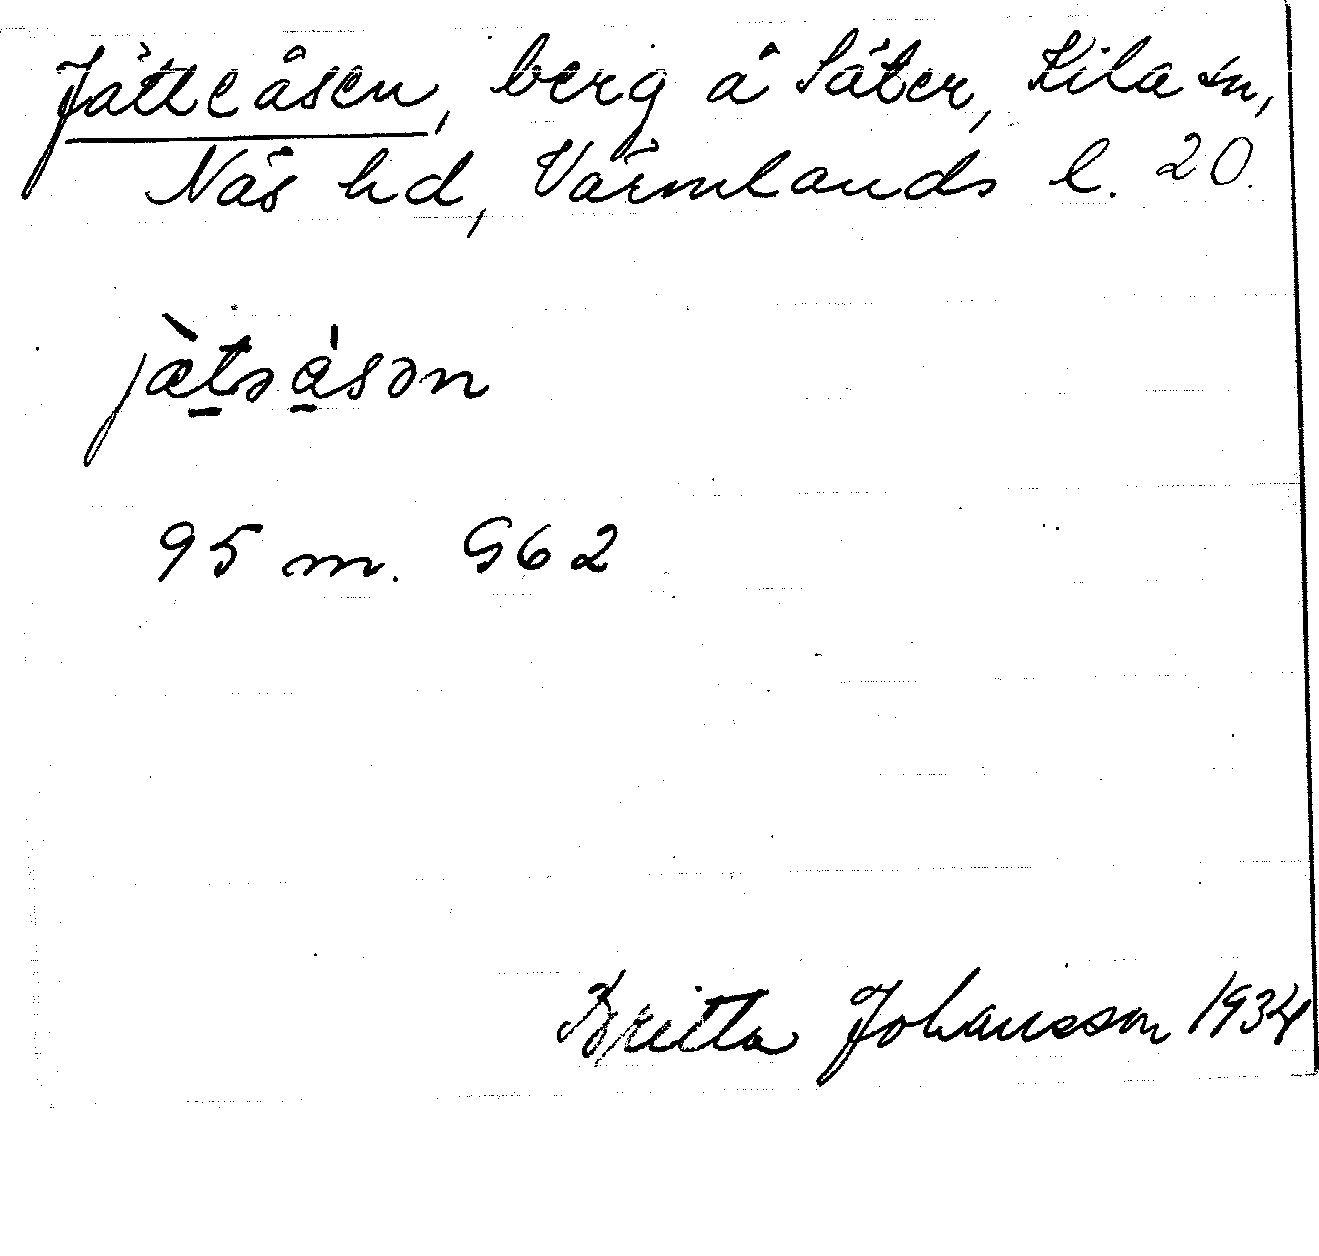 Jätteåsen, berg å Säter, Kila sn,
Näs hd, Värmlands l. 20.
jæ̀təåsən
95 m. G62
Britta Johansson 1934